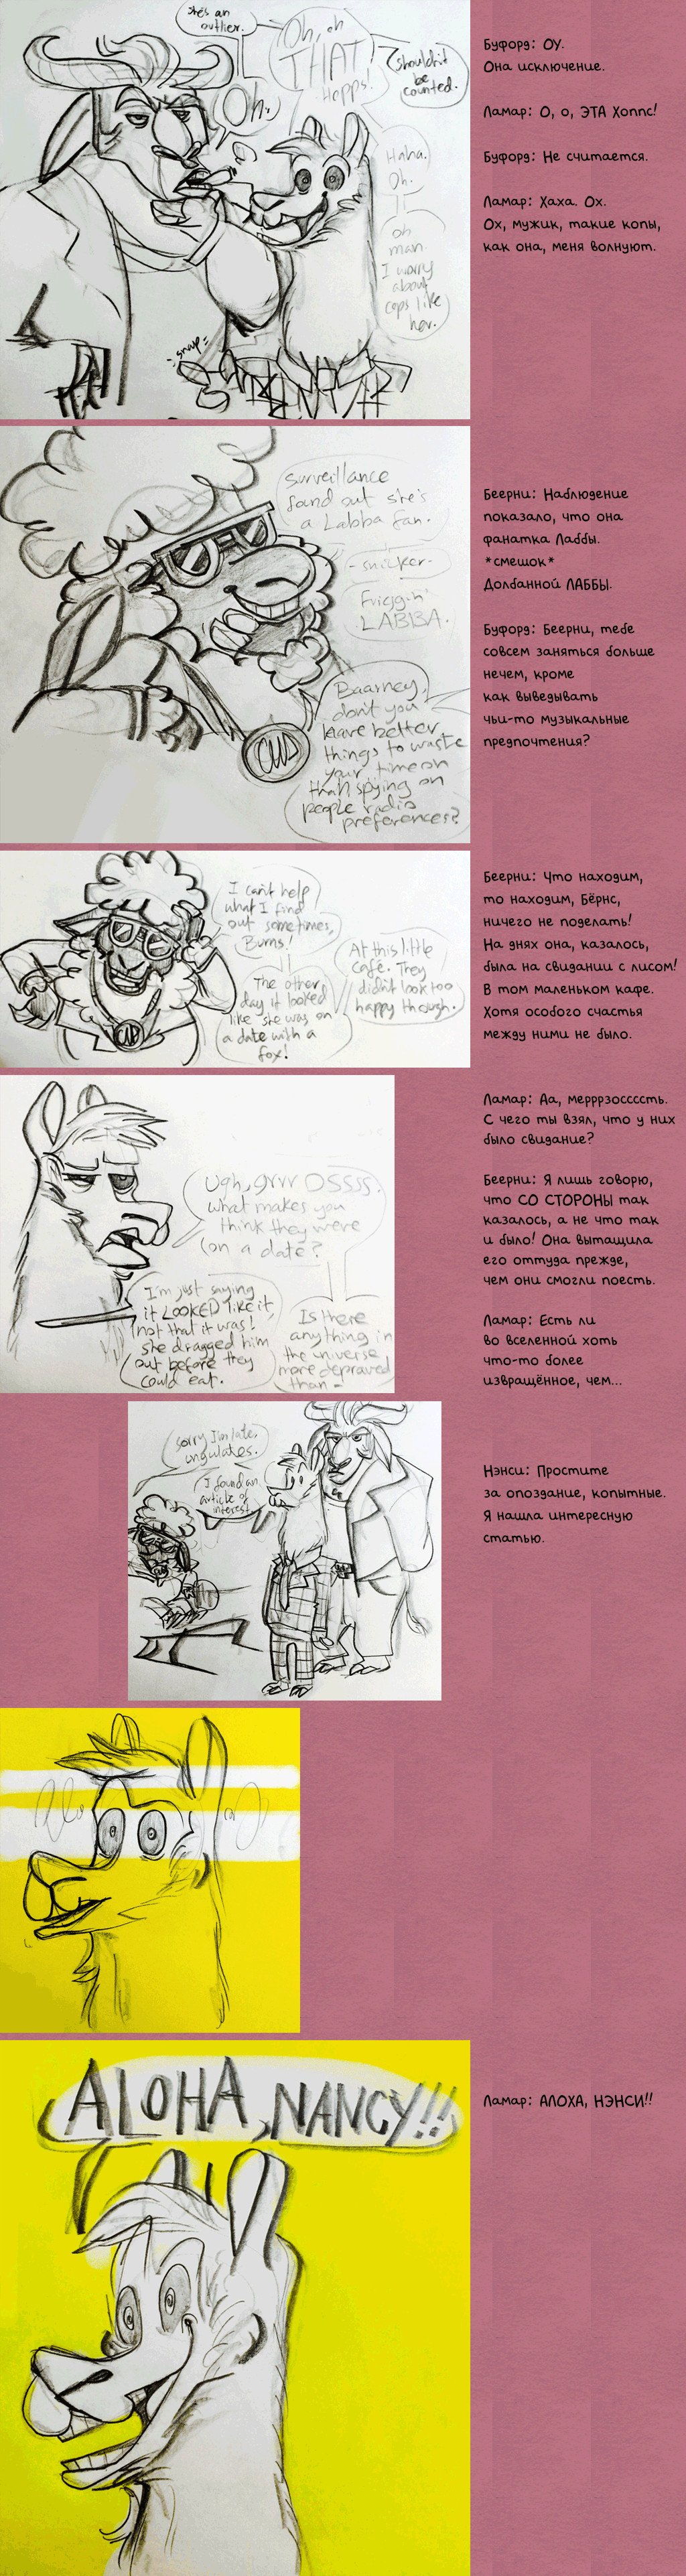 she's an
outlier.
Oh.
Oh, oh
THAT
Hopps!
Shouldn't
be
counted.
Haha.
Oh.
oh
man.
I worry
about
cops like
her.
-snap-
Буфорд: ОУ.
Она исключение.
Ламар: О, о, ЭТА Хоппс!
Буфорд: Не считается.
Ламар: Хаха. Ох.
Ох, мужик, такие копы,
как она, меня волнуют.
Surveillance
found out she's
a Labba fan.
-snicker-
Friggin'
LABBA.
Baarney,
don't you
have better
things to waste
your time on
than spying on
people radio
preferences?
Беерни: Наблюдение
показало, что она
фанатка Лаббы.
*смешок*
Долбанной ЛАББЫ.
Буфорд: Беерни, тебе
совсем заняться больше
нечем, кроме
как выведывать
чьи-то музыкальные
предпочтения?
I can't help
what I find
out sometimes,
Burns!
The other
day it looked
like she was on
a date with a
fox!
At this little
café. They
didn't look too
happy though.
Беерни: Что находим,
то находим, Бёрнс,
ничего не поделать!
На днях она, казалось,
была на свидании с лисом!
В том маленьком кафе.
Хотя особого счастья
между ними не было.
Ugh, grrrOSSSS.
what makes you
think they were
on a date?
I'm just saying
it LOOKED like it,
not that it was!
she dragged him
out before they
could eat.
Is there
anything in
the universe
more depraved
than -
Ламар: Аа, мерррзоссссть.
С чего ты взял, что у них
было свидание?
Беерни: Я лишь говорю,
что СО СТОРОНЫ так
казалось, а не что так
и было! Она вытащила
его оттуда прежде,
чем они смогли поесть.
Ламар: Есть ли
во вселенной хоть
что-то более
извращённое, чем...
sorry I'm late,
ungulates.
I found an
article of
interest.
Нэнси: Простите
за опоздание, копытные.
Я нашла интересную
статью.
ALOHA, NANCY!!
Ламар: АЛОХА, НЭНСИ!!